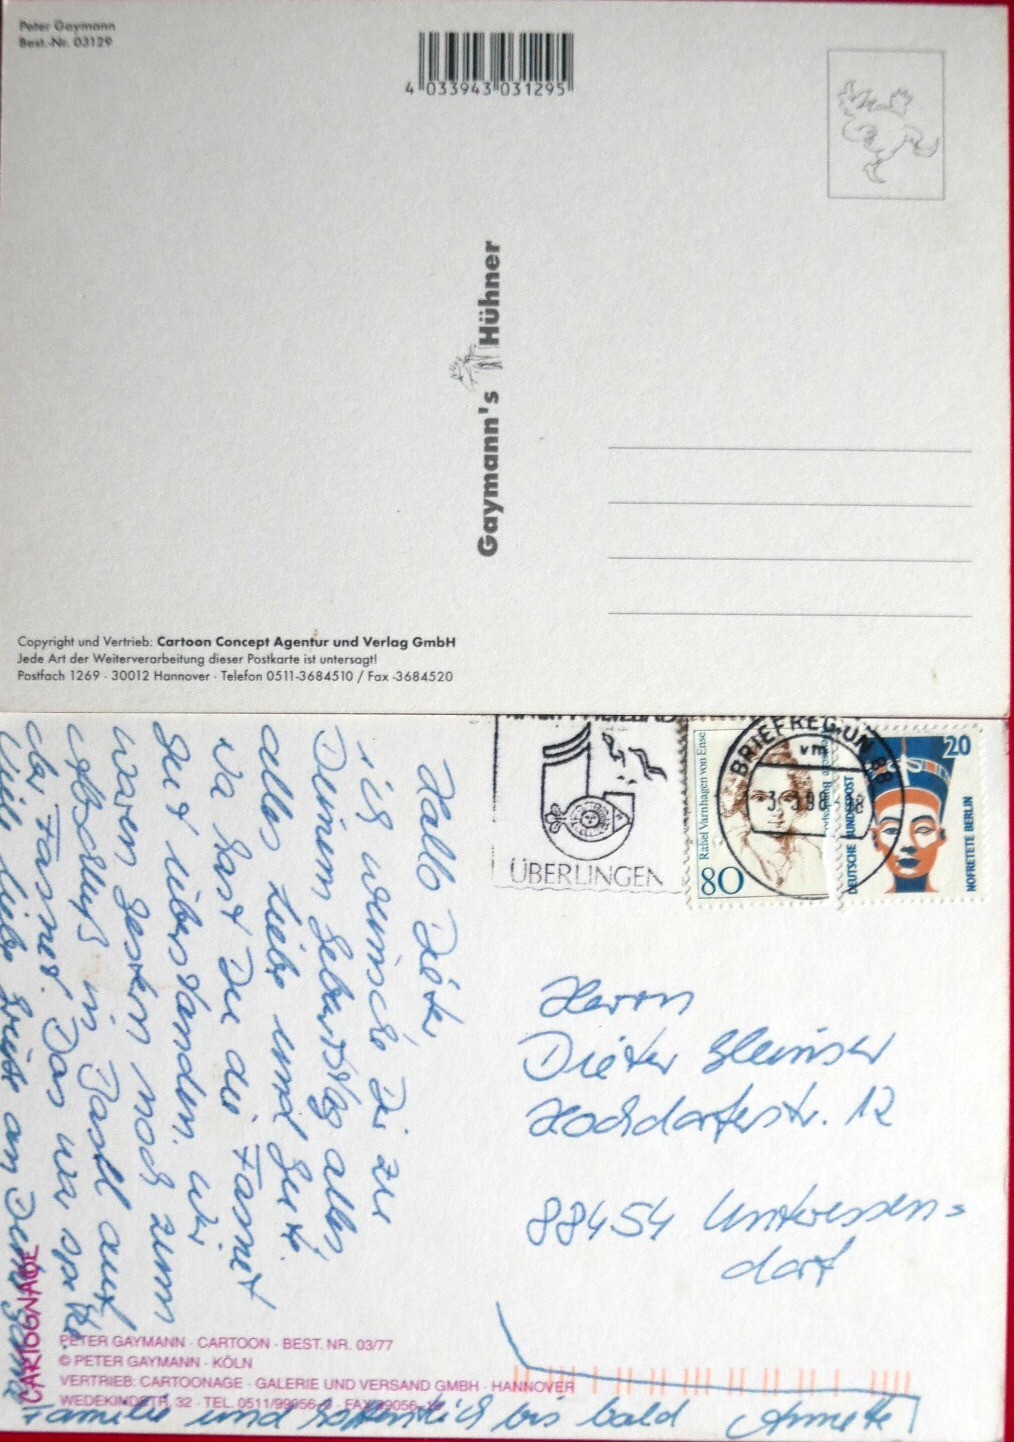 Peter Gaymann
Best.-Nr. 03129
4 033943 031295
Gaymann's Hühner
Copyright und Vertrieb: Cartoon Concept Agentur und Verlag GmbH
Jede Art der Weiterverarbeitung dieser Postkarte ist untersagt!
Postfach 1269 · 30012 Hannover · Telefon 0511-3684510 / Fax -3684520
Hallo Dieter,
ich wünsche Dir zu
Deinem Geburtstag alles
alles Liebe und Gute.
Na hast Du die Fasnet
gut überstanden. Wir
waren gestern noch zum
Abschluß in Basel auf
der Fasnet. Das war spitze.
Viele liebe Grüße an Deine ganze
Familie und hoffentlich bis bald Annette
ÜBERLINGEN
Rahel Varnhagen von Ense
80
BRIEFREGION 88
vm
DEUTSCHE BUNDESPOST
20
NOFRETETE BERLIN
Herrn
Dieter
Hochdorferstr. 12
88454 Unteressen=
dorf
CARTOGNAGE
PETER GAYMANN · CARTOON · BEST. NR. 03/77
© PETER GAYMANN · KÖLN
VERTRIEB: CARTOONAGE · GALERIE UND VERSAND GMBH · HANNOVER
WEDEKINDSTR. 32 · TEL. 0511/99056-0 · FAX 99056-